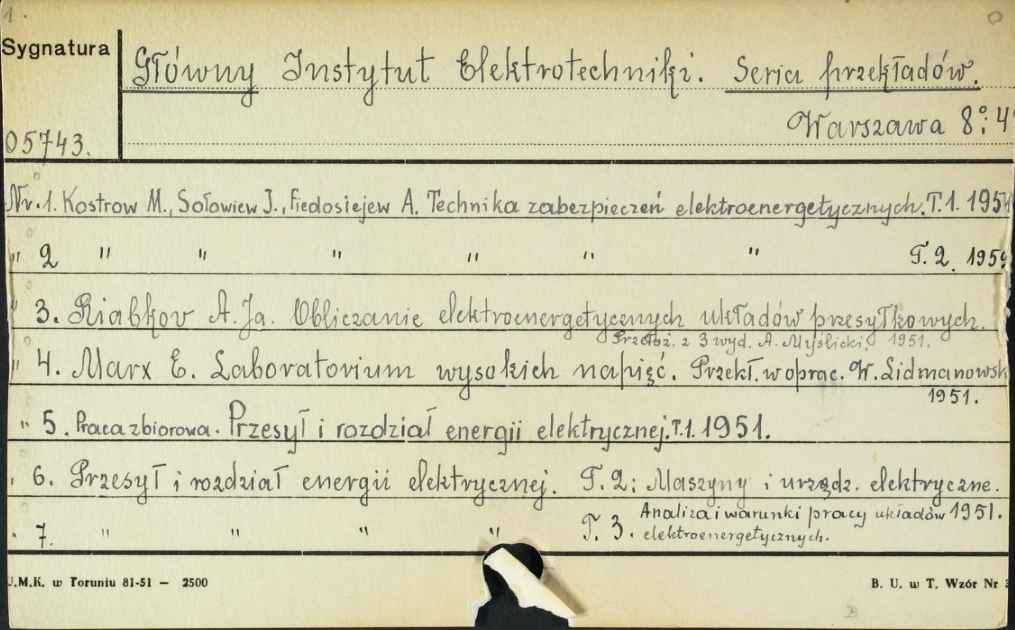 1.
Sygnatura
Główny Instytut Elektrotechniki. Seria przekładów.
Warszawa 8°: 4°
05743.
Nr. 1. Kostrow M., Sołowiew J., Fiedosiejew A. Technika zabezpieczeń elektroenergetycznych. T. 1. 195
" 2 " " " " " " T. 2. 195
" 3. Riabkov A. Ja. Obliczanie elektroenergetycznych układów przesyłkowych.
Przełoż. z 3 wyd. A. Myślicki. 1951.
" 4. Marx E. Laboratorium wysokich napięć. Przekł. w oprac. W. Lidmanowsk
1951.
" 5. Praca zbiorowa. Przesył i rozdział energii elektrycznej. T. 1. 1951.
" 6. Przesył i rozdział energii elektrycznej. T. 2: Maszyny i urządz. elektryczne.
1951.
" 7. " " " " T. 3. Analiza i warunki pracy układów
elektroenergetycznych.
U.M.K. w Toruniu 81-51 — 2500
B. U. w T. Wzór Nr